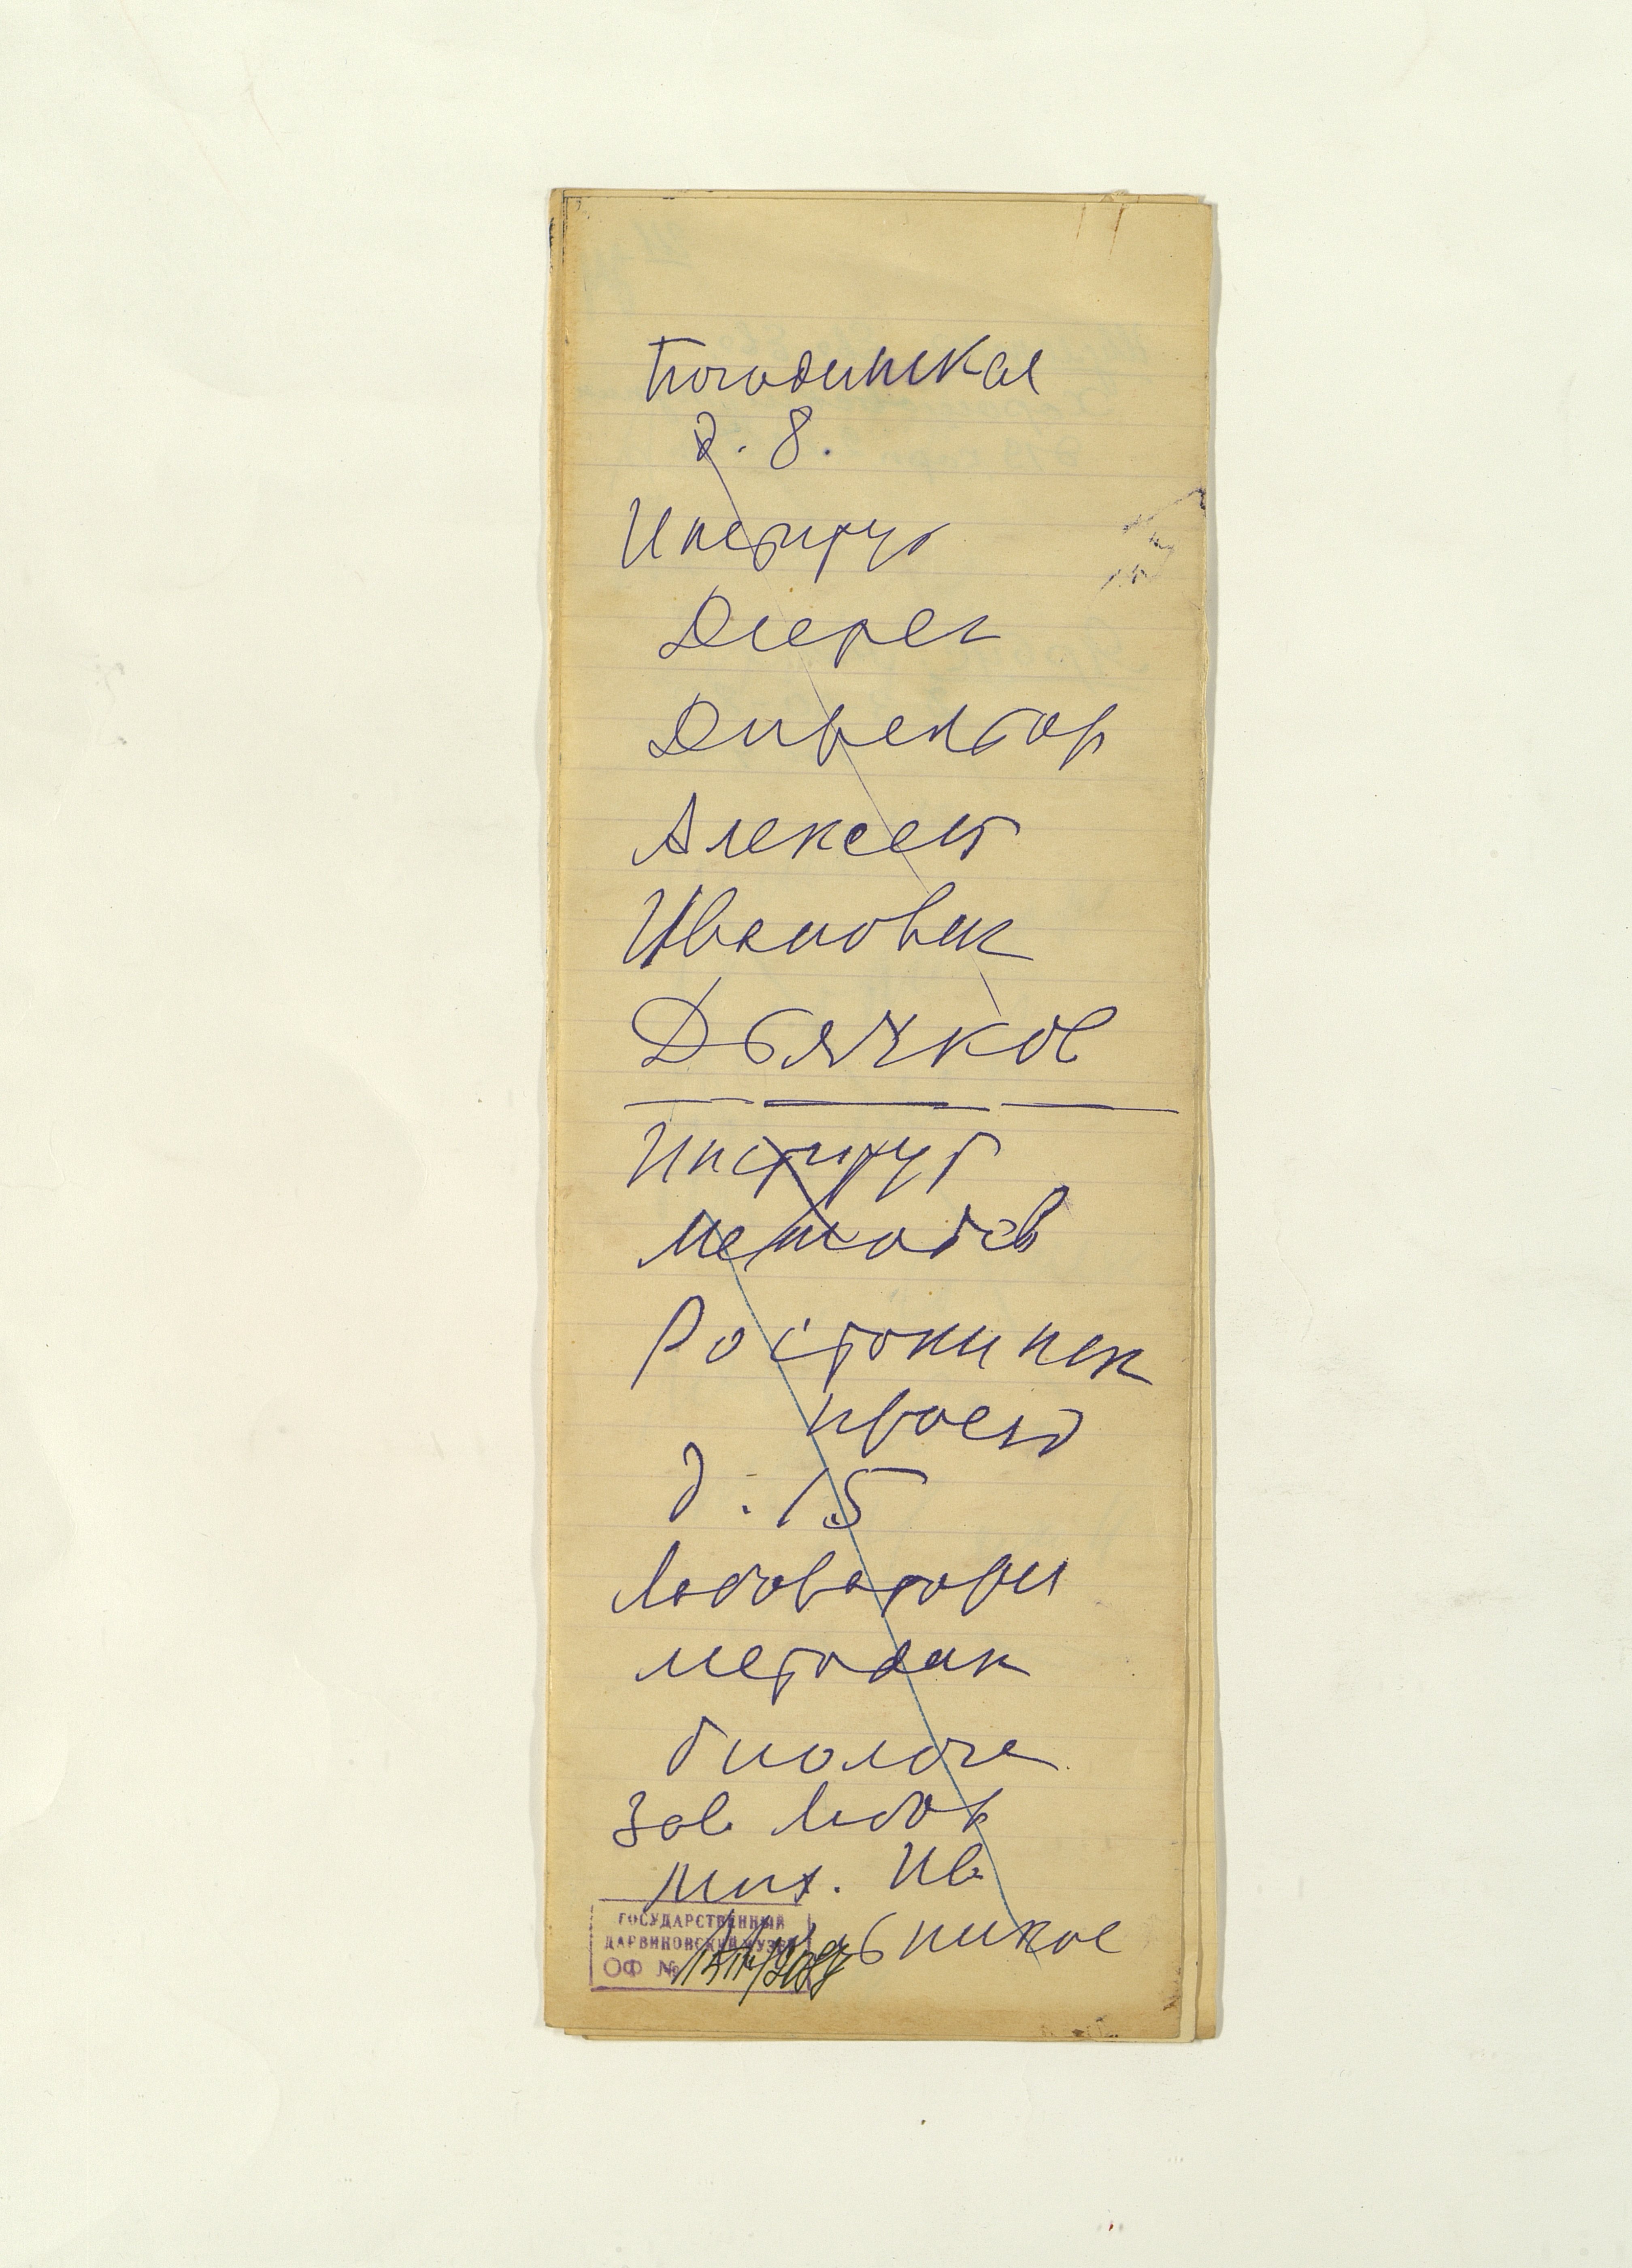 Погодинская
д. 8.
Институт
Директор
Алексей
Иванович
Дьячков
Институт
методов
Ростокинск
проезд
д. 15
Лаборатори
методик
биологи
Зав. Лабор
Мих. Ив
ГОСУДАРСТВЕННЫЙ
ДАРВИНОВСКИЙ МУЗЕЙ
ОФ №